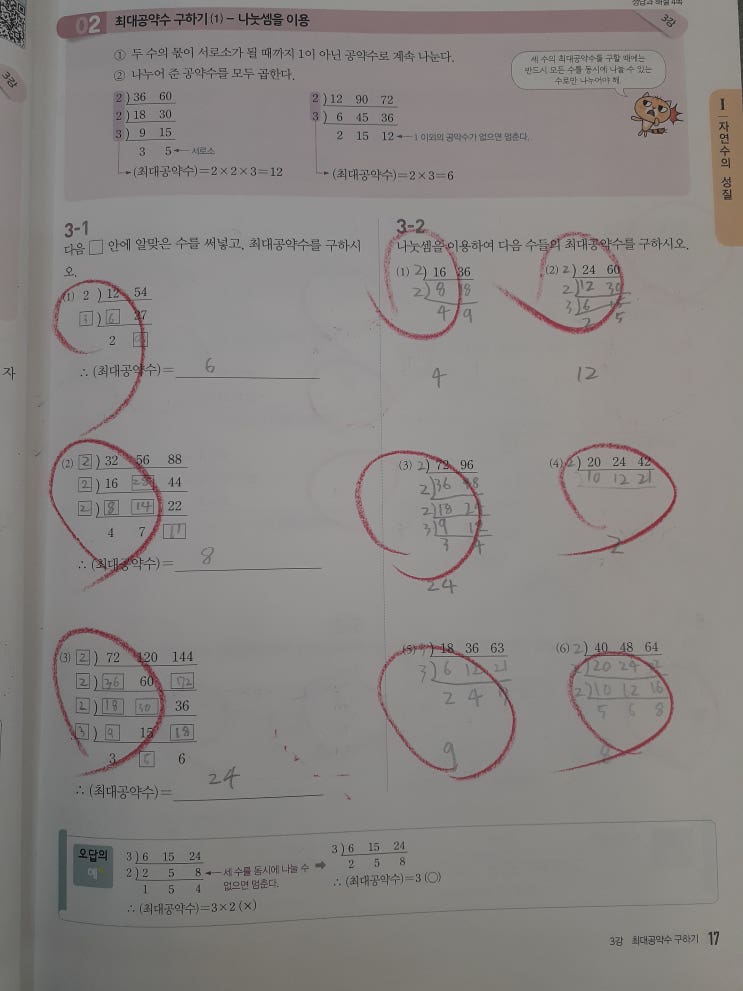 정답과 해설 4쪽
02 최대공약수 구하기 (1) - 나눗셈을 이용
3강
① 두 수의 몫이 서로소가 될 때까지 1이 아닌 공약수로 계속 나눈다.
② 나누어 준 공약수를 모두 곱한다.
세 수의 최대공약수를 구할 때에는
반드시 모든 수를 동시에 나눌 수 있는
수로만 나누어야 해.
2 ) 36 60
2 ) 18 30
3 ) 9 15
3 5 ← 서로소
→ (최대공약수)=2×2×3=12
2 ) 12 90 72
3 ) 6 45 36
2 15 12 ← 1 이외의 공약수가 없으면 멈춘다.
→ (최대공약수)=2×3=6
3강
I
자연수의 성질
자
3-1
다음 □ 안에 알맞은 수를 써넣고, 최대공약수를 구하시
오.
(1) 2 ) 12 54
3 ) 6 27
2
∴ (최대공약수)= 6
(2) 2 ) 32 56 88
2 ) 16 28 44
2 ) 8 14 22
4 7 11
∴ (최대공약수)= 8
(3) 2 ) 72 120 144
2 ) 36 60 72
2 ) 18 30 36
3 ) 9 15 18
3 6
∴ (최대공약수)= 24
3-2
나눗셈을 이용하여 다음 수들의 최대공약수를 구하시오.
(1) 2 ) 16 36
2 ) 8 18
4 9
4
(2) 2 ) 24 60
2 ) 12 30
3 ) 6 15
2 5
12
(3) 2 ) 72 96
2 ) 36 48
2 ) 18 24
3 ) 9 12
3 4
24
(4) 2 ) 20 24 42
10 12 21
2
(5) ) 18 36 63
3 ) 6 12 21
2 4
9
(6) 2 ) 40 48 64
2 ) 20 24
2 ) 10 12 16
5 6 8
8
오답의
예
3 ) 6 15 24
2 ) 2 5 8 ← 세 수를 동시에 나눌 수
없으면 멈춘다.
1 5 4
∴ (최대공약수)=3×2 (×)
➡ 3 ) 6 15 24
2 5 8
∴ (최대공약수)=3 (○)
3강 최대공약수 구하기 17